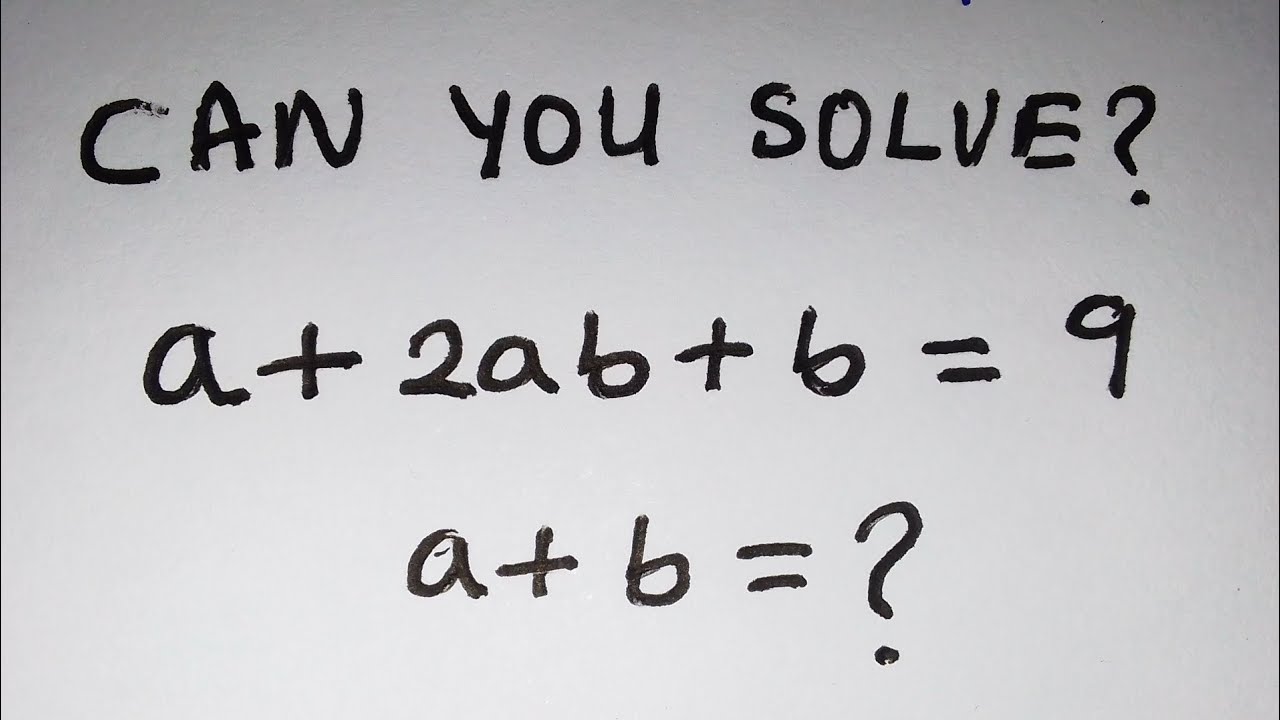 CAN YOU SOLVE?
a + 2ab + b = 9
a + b = ?